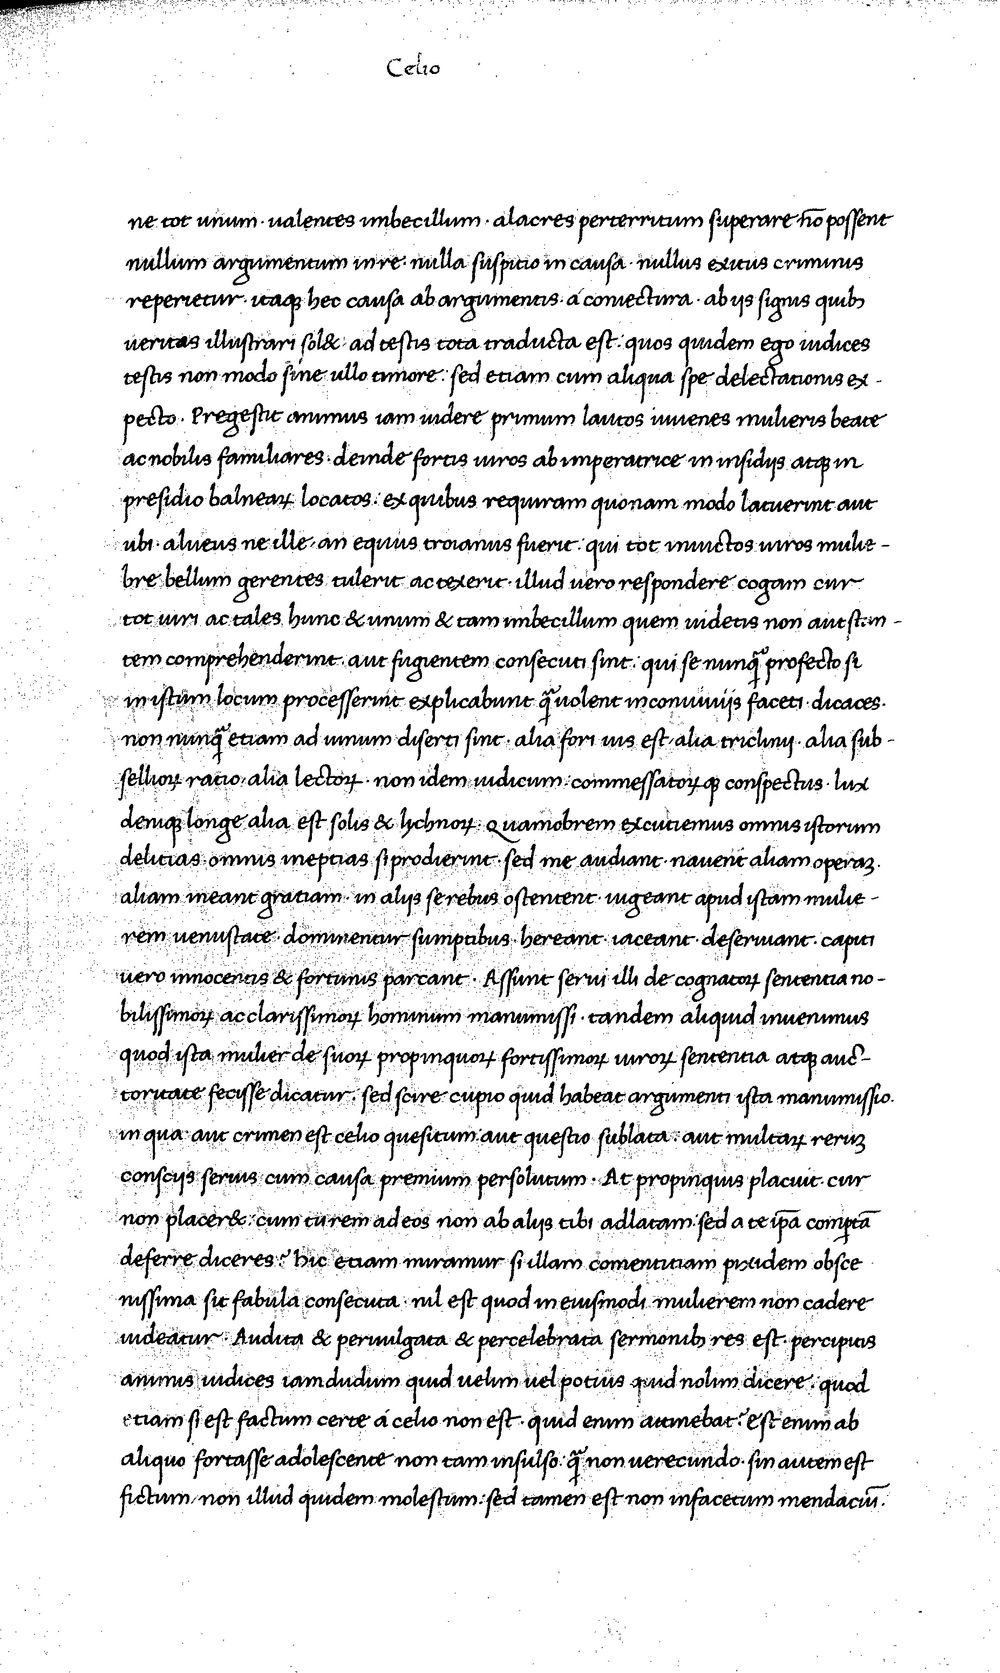 Celio
ne tot unum · ualentes imbecillum · alacres perterritum superare nō possent
nullum argumentum in re · nulla suspitio in causa · nullus exitus criminis
reperietur · itaqꝫ hec causa ab argumentis · á coniectura · ab iis signis quibꝫ
ueritas illustrari sol& · ad testis tota traducta est : quos quidem ego iudices
testis non modo sine ullo timore : sed etiam cum aliqua spe delectationis ex -
pecto . Pregestit animus iam uidere primum lautos iuuenes mulieris beate
ac nobilis familiares · deinde fortis uiros ab imperatrice in insidijs atqꝫ in
presidio balneaꝝ locatos : ex quibus requiram quonam modo latuerint aut
ubi · alueus ne ille · an equus troianus fuerit : qui tot inuictos uiros mulie -
bre bellum gerentes tulerit ac texerit · illud uero respondere cogam cur
tot uiri ac tales hunc & unum & tam imbecillum quem uidetis non aut stan -
tem comprehenderint · aut fugientem consecuti sint : qui se nunq̄ profecto si
in istum locum processerint explicabunt q̄ uolent in conuiuijs faceti · dicaces ·
non nunq̄ etiam ad uinum diserti sint · alia fori uis est · alia triclinij · alia sub -
selliorꝝ ratio · alia lectorꝝ · non idem iudicum commessatorꝝ qꝫ conspectus · lux
deniqꝫ longe alia est solis & lychnorꝝ . Quamobrem excutiemus omnis istorum
delitias · omnis ineptias si prodierint · sed me audiant · nauent aliam operaꝫ ·
aliam ineant gratiam · in aliis se rebus ostentent · uigeant apud istam mulie -
rem uenustate · dominentur sumptibus · hereant · iaceant · deseruiant · capiti
uero innocentis & fortunis parcant · Assunt serui illi de cognatorꝝ sententia no -
bilissimorꝝ ac clarissimorꝝ hominum manumissi · tandem aliquid inuenimus
quod ista mulier de suorꝝ propinquorꝝ fortissimorꝝ uirorꝝ sententia atqꝫ auc -
toritate fecisse dicatur . sed scire cupio quid habeat argumenti ista manumissio .
in qua aut crimen est celio quesitum aut questio sublata : aut multaꝝ reruꝫ
conscijs seruis cum causa premium persolutum · At propinquis placuit · cur
non placer& : cum tu rem ad eos non ab alijs tibi adlatam sed a te ip̄a compt̄ā
deferre diceres ? hic etiam miramur si illam comentitiam pixidem obsce
nissima sit fabula consecuta · nil est quod in eiusmodi mulierem non cadere
uideatur · Audita & peruulgata & percelebrata sermonibꝫ res est · percipitis
animis iudices iamdudum quid uelim uel potius quid nolim dicere · quod
etiam si est factum certe á celio non est · quid enim attinebat ? est enim ab
aliquo fortasse adolescente non tam insulso q̄ non uerecundo · sin autem est
fictum · non illud quidem molestum : sed tamen est non infacetum mendaciū .